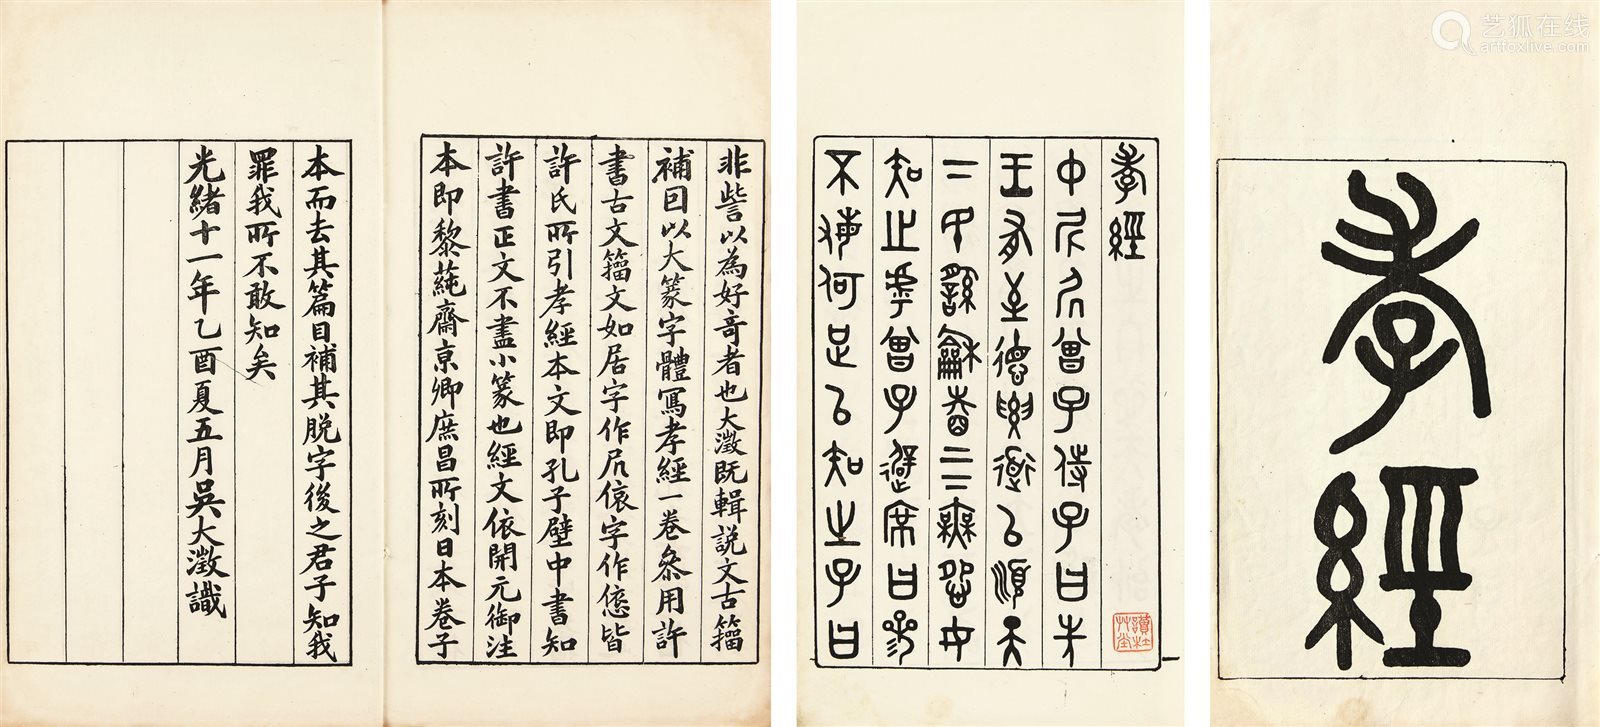 孝經
孝經
中尼凥曾子侍子曰先
王有至德要道以順天
下民用龢睦上下無怨女
知之乎曾子避席曰參
不敏何足以知之子曰
讀杜艸堂
非訾以為好奇者也大澂既輯說文古籀
補回以大篆字體寫孝經一卷叅用許
書古文籀文如居字作凥偯字作㥋皆
許氏所引孝經本文即孔子壁中書知
許書正文不盡小篆也經文依開元御注
本即黎蒓齋京卿庶昌所刻日本卷子
本而去其篇目補其脫字後之君子知我
罪我所不敢知矣
光緒十一年乙酉夏五月吳大澂識
艺狐在线
artfoxlive.com